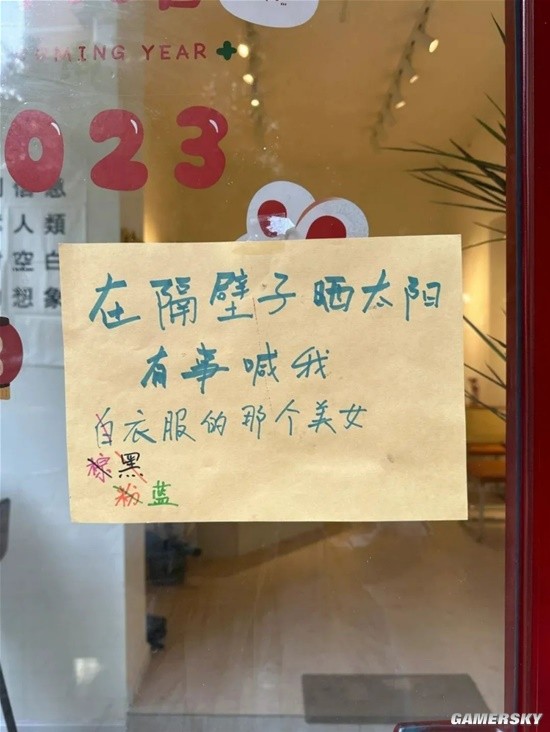 MING YEAR
023
人類
空白
想象
在隔壁子晒太阳
有事喊我
白衣服的那个美女
棕黑
粉蓝
GAMERSKY